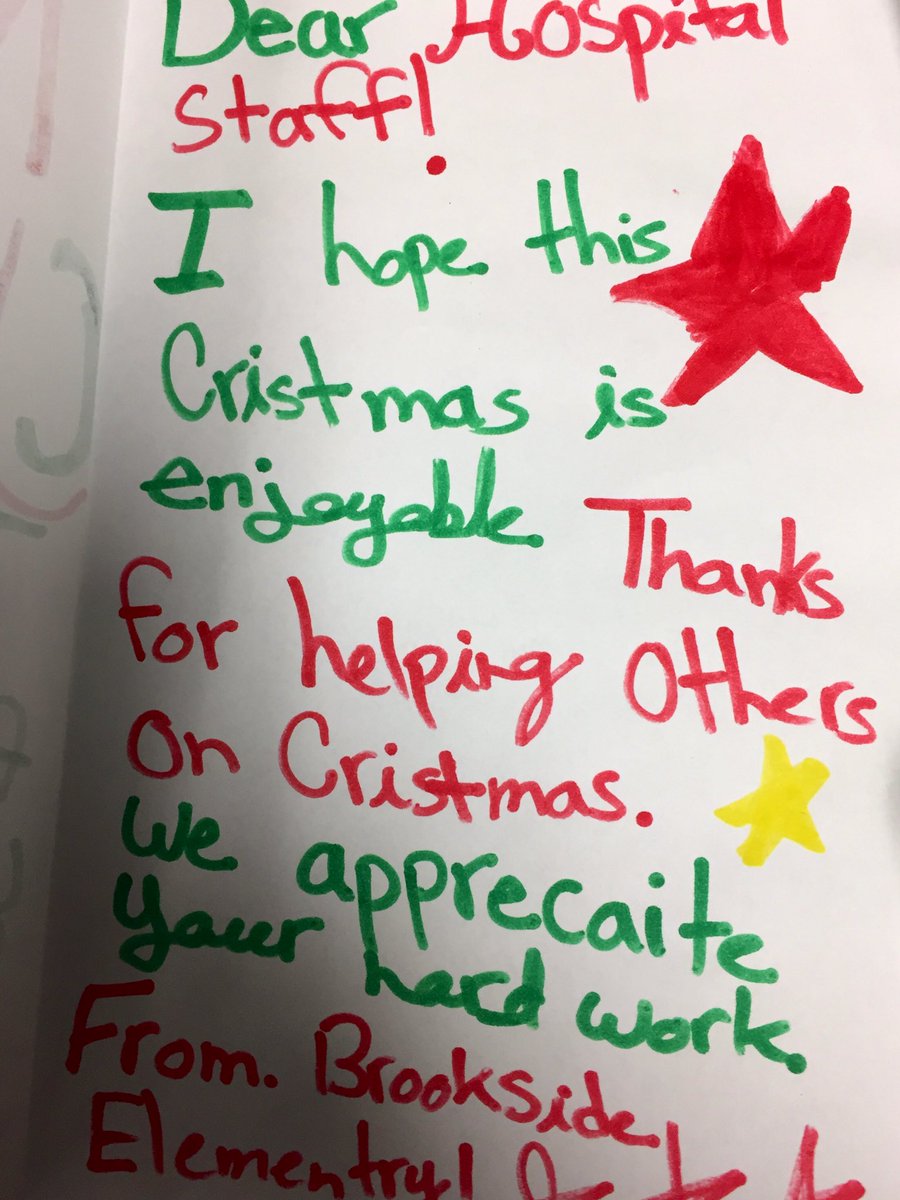 Dear Hospital
Staff!
I hope this
Cristmas is
enjoyable Thanks
for helping Others
On Cristmas.
We apprecaite
your hard work.
From. Brookside
Elementry!